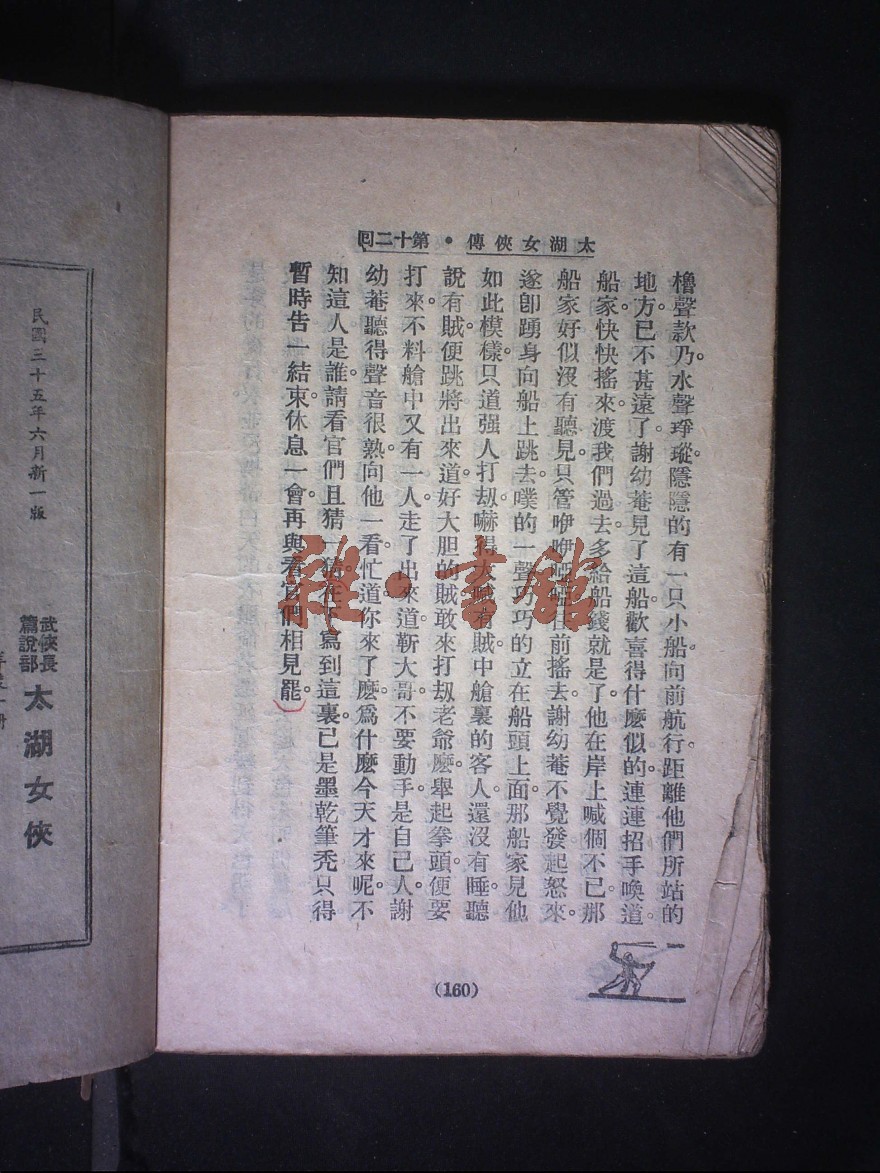 太湖女俠傳・第十二回
櫓聲款乃。水聲琤瑽。隱隱的有一只小船向前航行。距離他們所站的
地方。已不甚遠了。謝幼菴見了這船。歡喜得什麽似的。連連招手喚道。
船家快快搖來。渡我們過去。多給船錢就是了。他在岸上喊個不已。那
船家好似沒有聽見。只管咿咿啞啞往前搖去。謝幼菴不覺發起怒來。
遂卽踴身向船上跳去。噗的一聲。巧巧的立在船頭上面。那船家見他
如此模樣。只道强人打刼。嚇得大喊有賊。中艙裏的客人還沒有睡。聽
說有賊。便跳將出來道。好大胆的賊。敢來打刼老爺麽。舉起拳頭。便要
打來。不料艙中又有一人走了出來道。靳大哥不要動手。是自己人。謝
幼菴聽得聲音很熟。向他一看。忙道。你來了麽。爲什麽今天才來呢。不
知這人是誰。請看官們且猜一猜。在下寫到這裏。已是墨乾筆禿。只得
暫時告一結束。休息一會。再與看官們相見罷。
(160)
民國三十五年六月新一版
武俠長
篇說部
太湖女俠
雜・書館